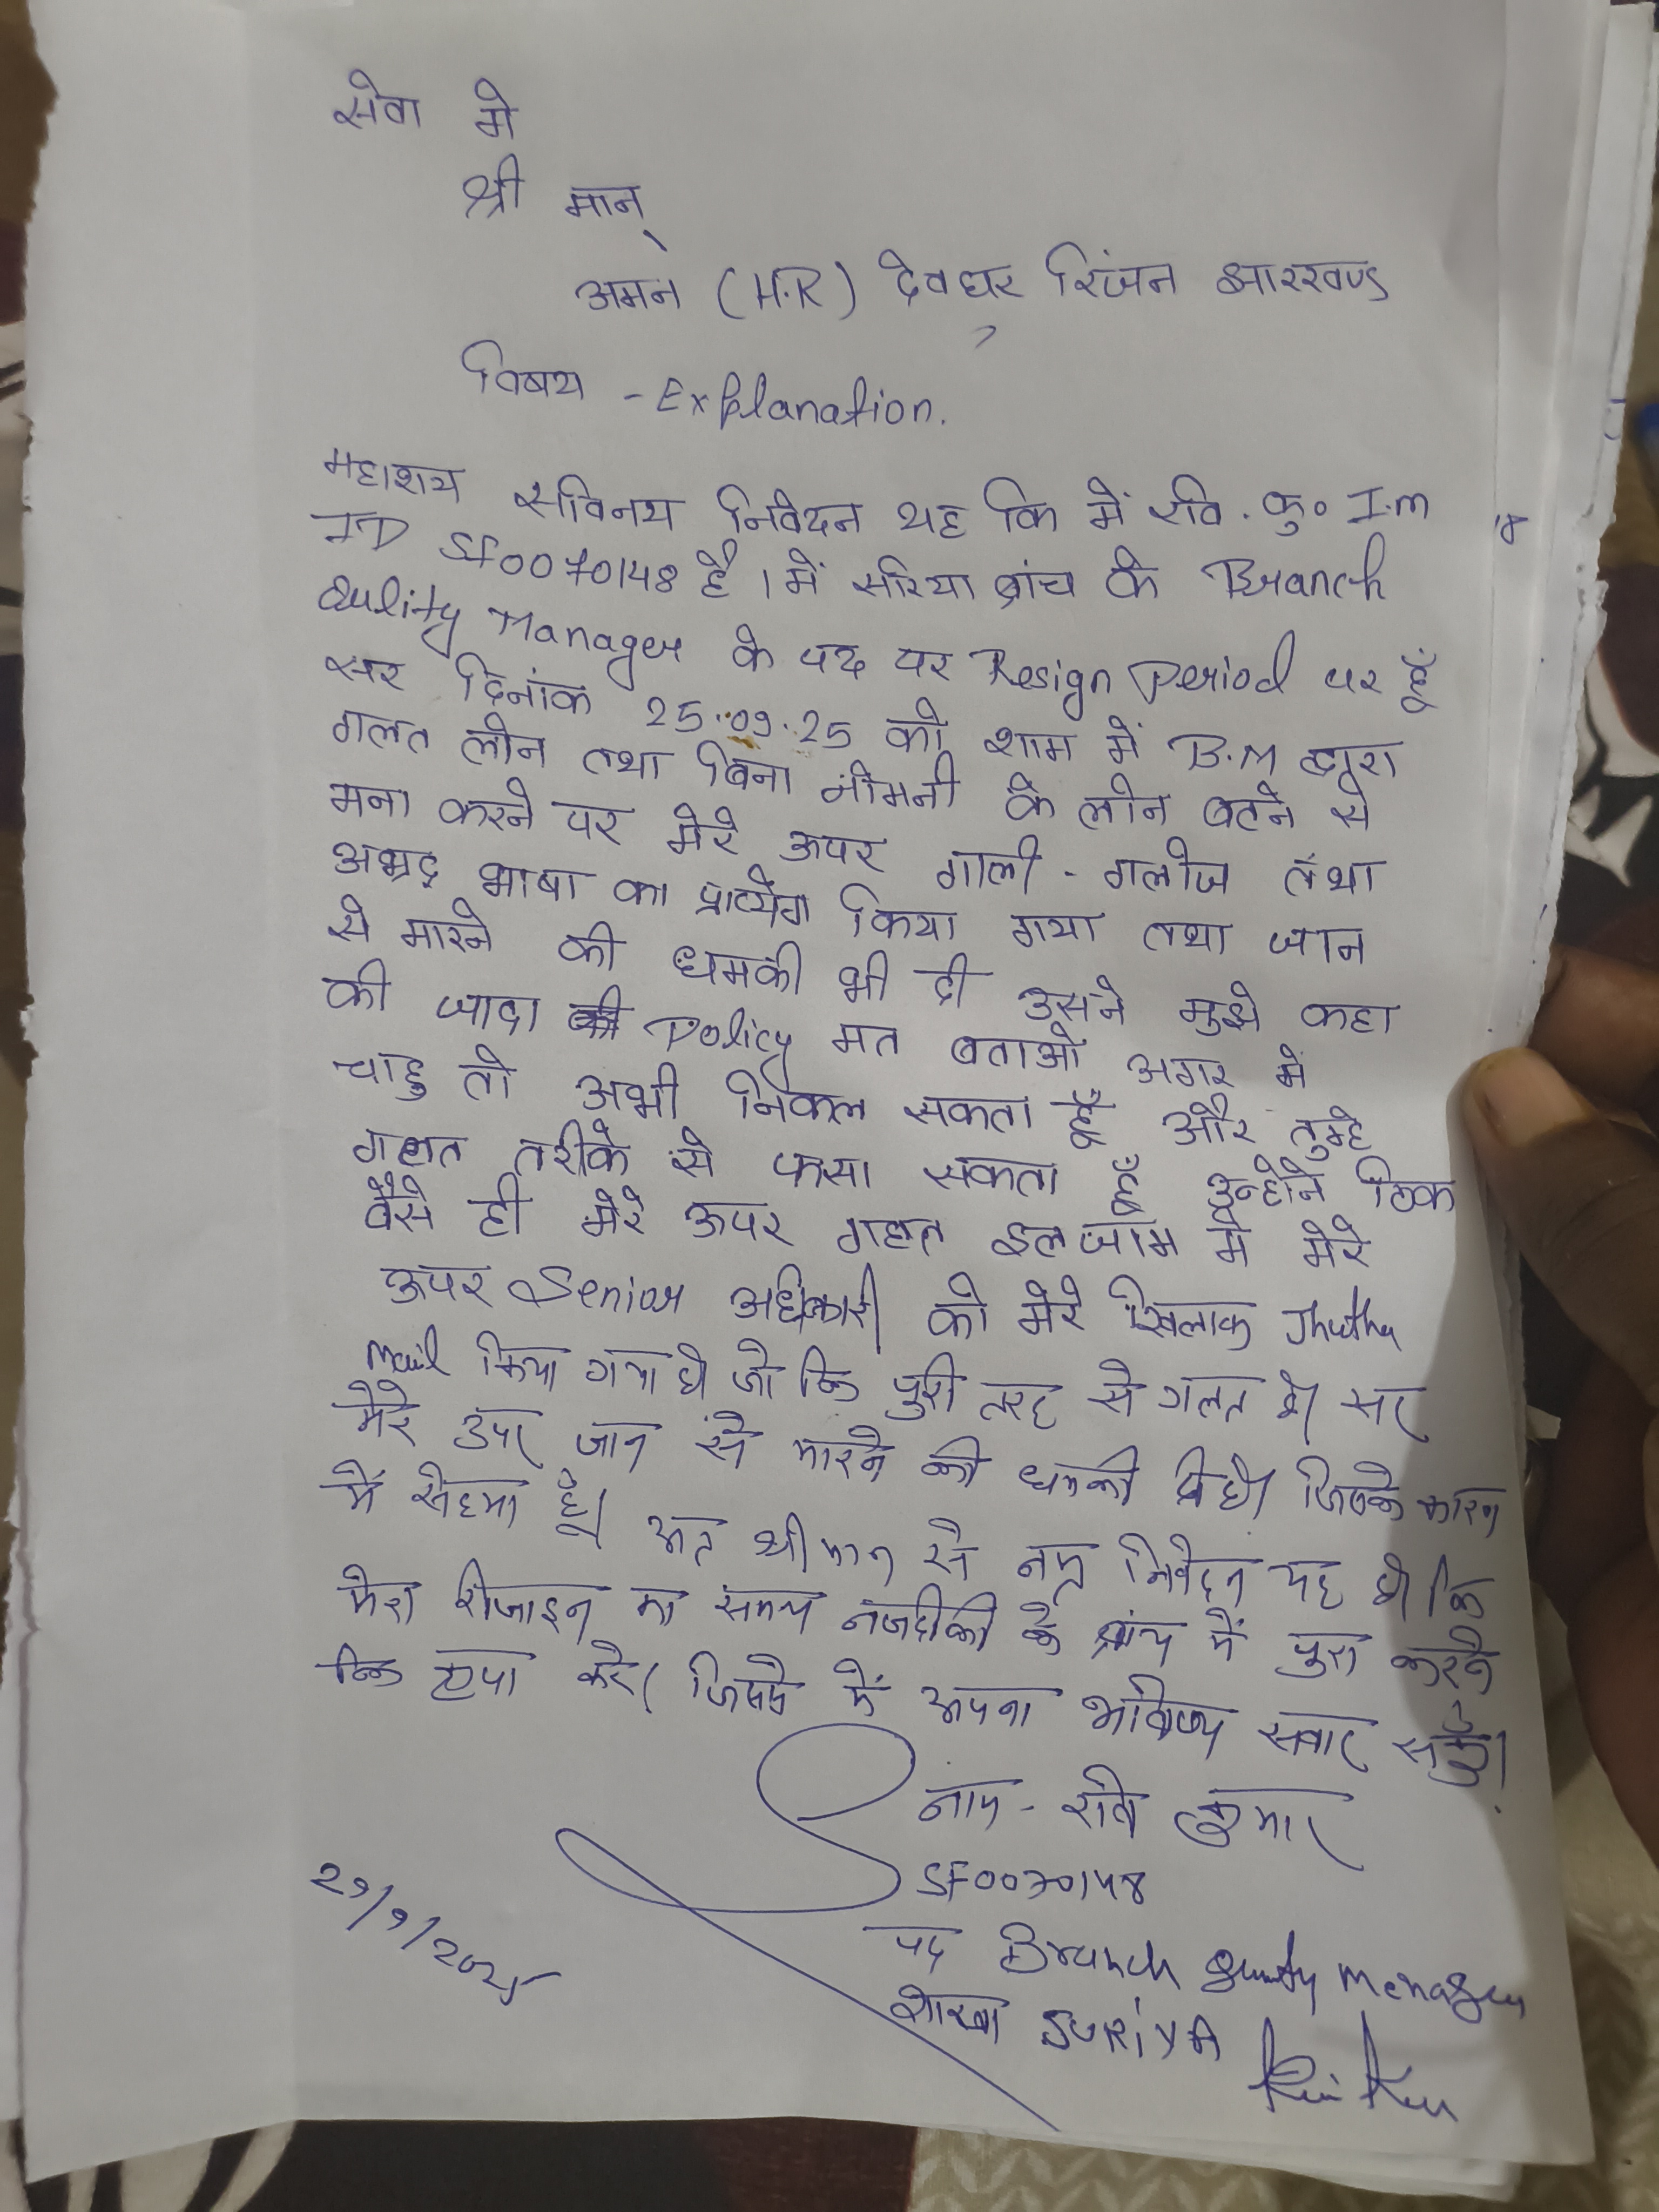 सेवा मे
श्री मान्
अमन (H.R) देवघर रिंजन झारखण्ड
विषय - Explanation.
महाशय सविनय निवेदन यह कि में रवि . कु० I.m
ID SF0070148 है । में सरिया ब्रांच के Branch
Qulity Manager के पद पर Resign Period पर हूँ
सर दिनांक 25.09.25 को शाम में B.M द्वारा
गलत लोन तथा बिना नोमनी के लोन बटने से
मना करने पर मेरे ऊपर गाली - गलोज तथा
अभद्र भाषा का प्रायेग किया गया तथा जान
से मारने की धमकी भी दी उसने मुझे कहा
की जादा Policy मत बताओ अगर में
चाहु तो अभी निकल सकता हूँ और तुम्हे
गलत तरीके से फसा सकता हूँ उन्होने ठिक
वैसे ही मेरे ऊपर गलत इलजाम मे मेरे
ऊपर Senior अधिकारी को मेरे खिलाफ Jhutha
mail किया गया है जो कि पुरी तरह से गलत है सर
मेरे उपर जान से मारने की धमकी दि है। जिसके कारन
मैं सेहमा हूँ। अत श्री मान से नम्र निवेदन यह है कि
मेरा रिजाइन का समय नजदीकी के ब्रांच में पुरा करने
कि कृपा करे। जिससे में अपना भविष्य सवार सकुँ।
नाम - रवि कुमार
SF0070148
पद Branch Qunity Menager
शाखा SURIYA
29/9/2025